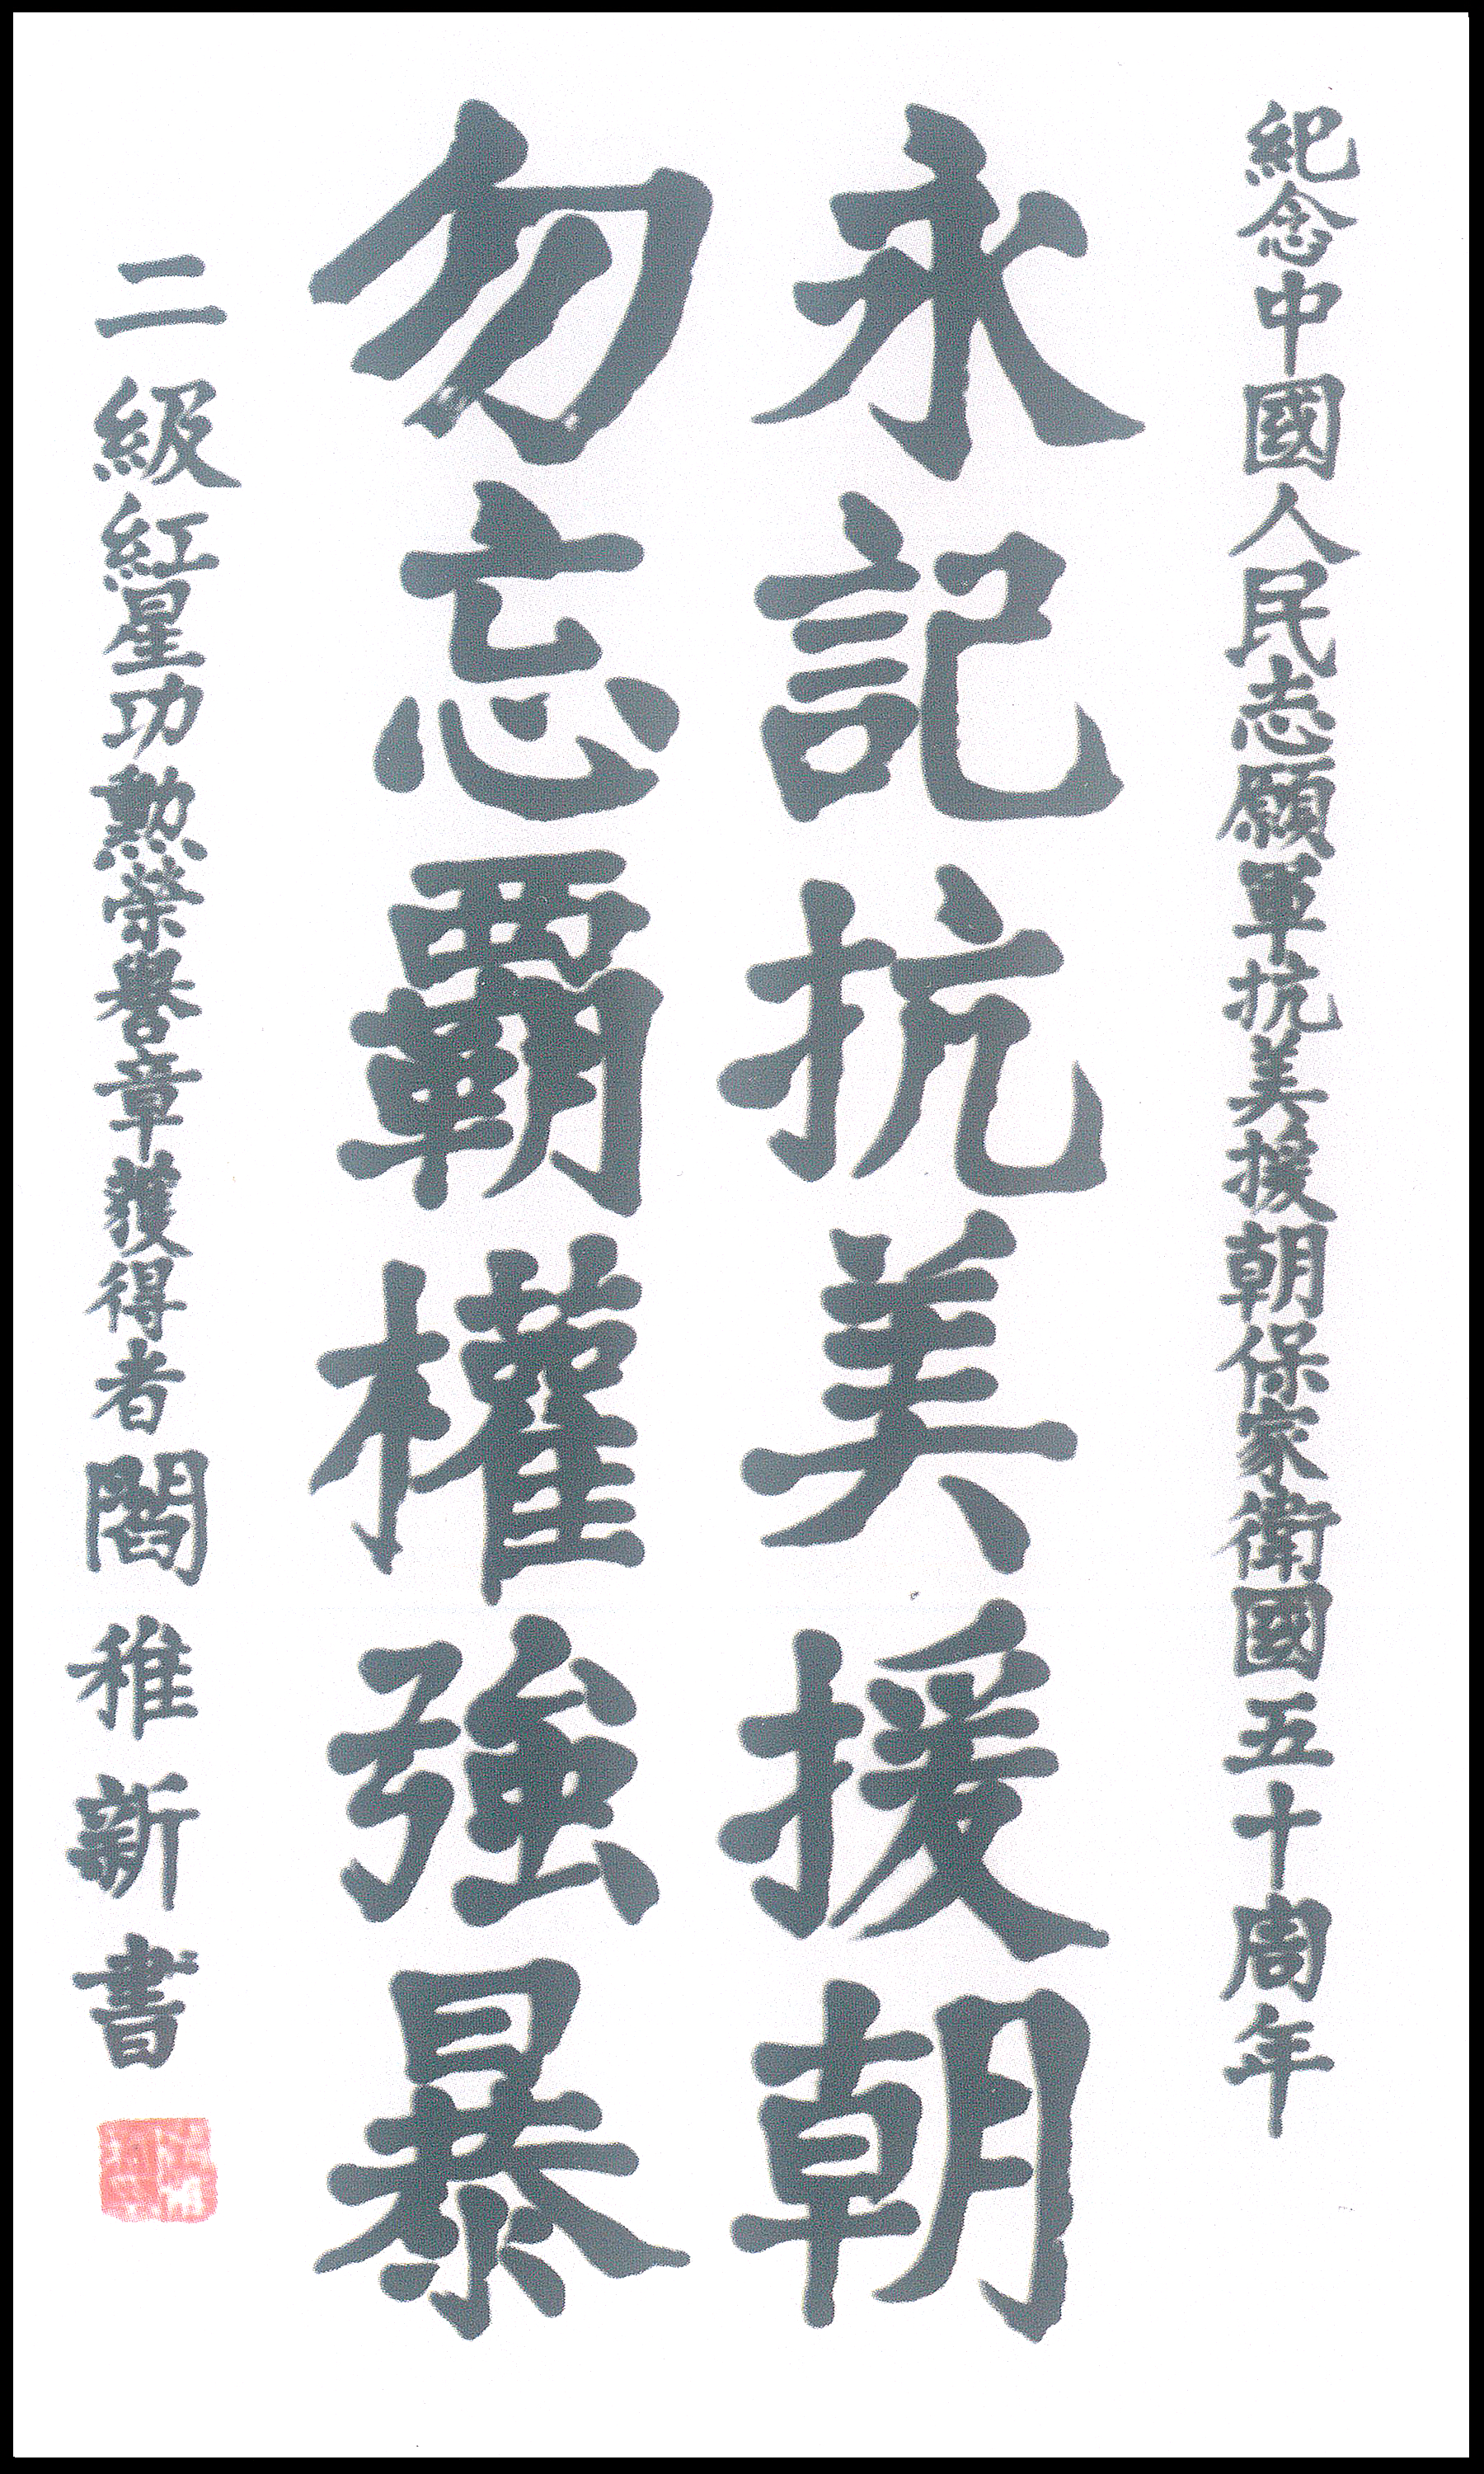 紀念中國人民志願軍抗美援朝保家衛國五十周年
永記抗美援朝
勿忘覇權強暴
二級紅星功勲榮譽章獲得者閻稚新書